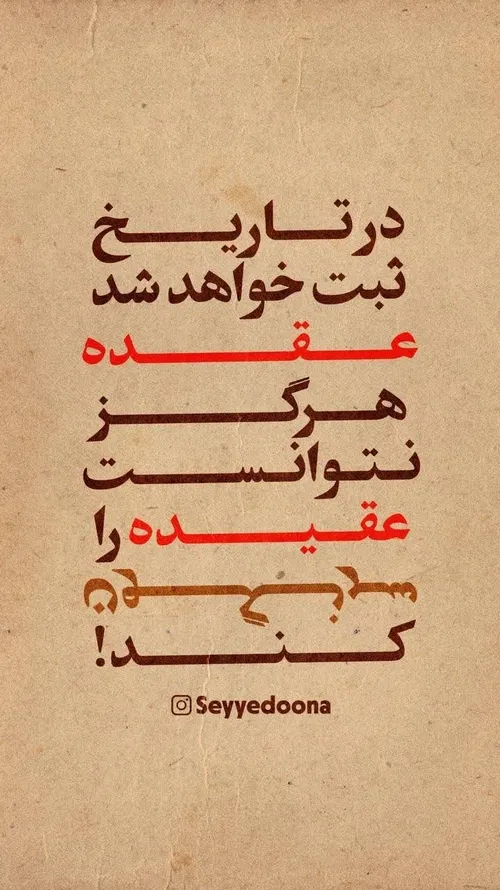 در تاریخ
ثبت خواهد شد
عقده
هرگز
نتوانست
عقیده را
سرنگون
کند!
Seyyedoona